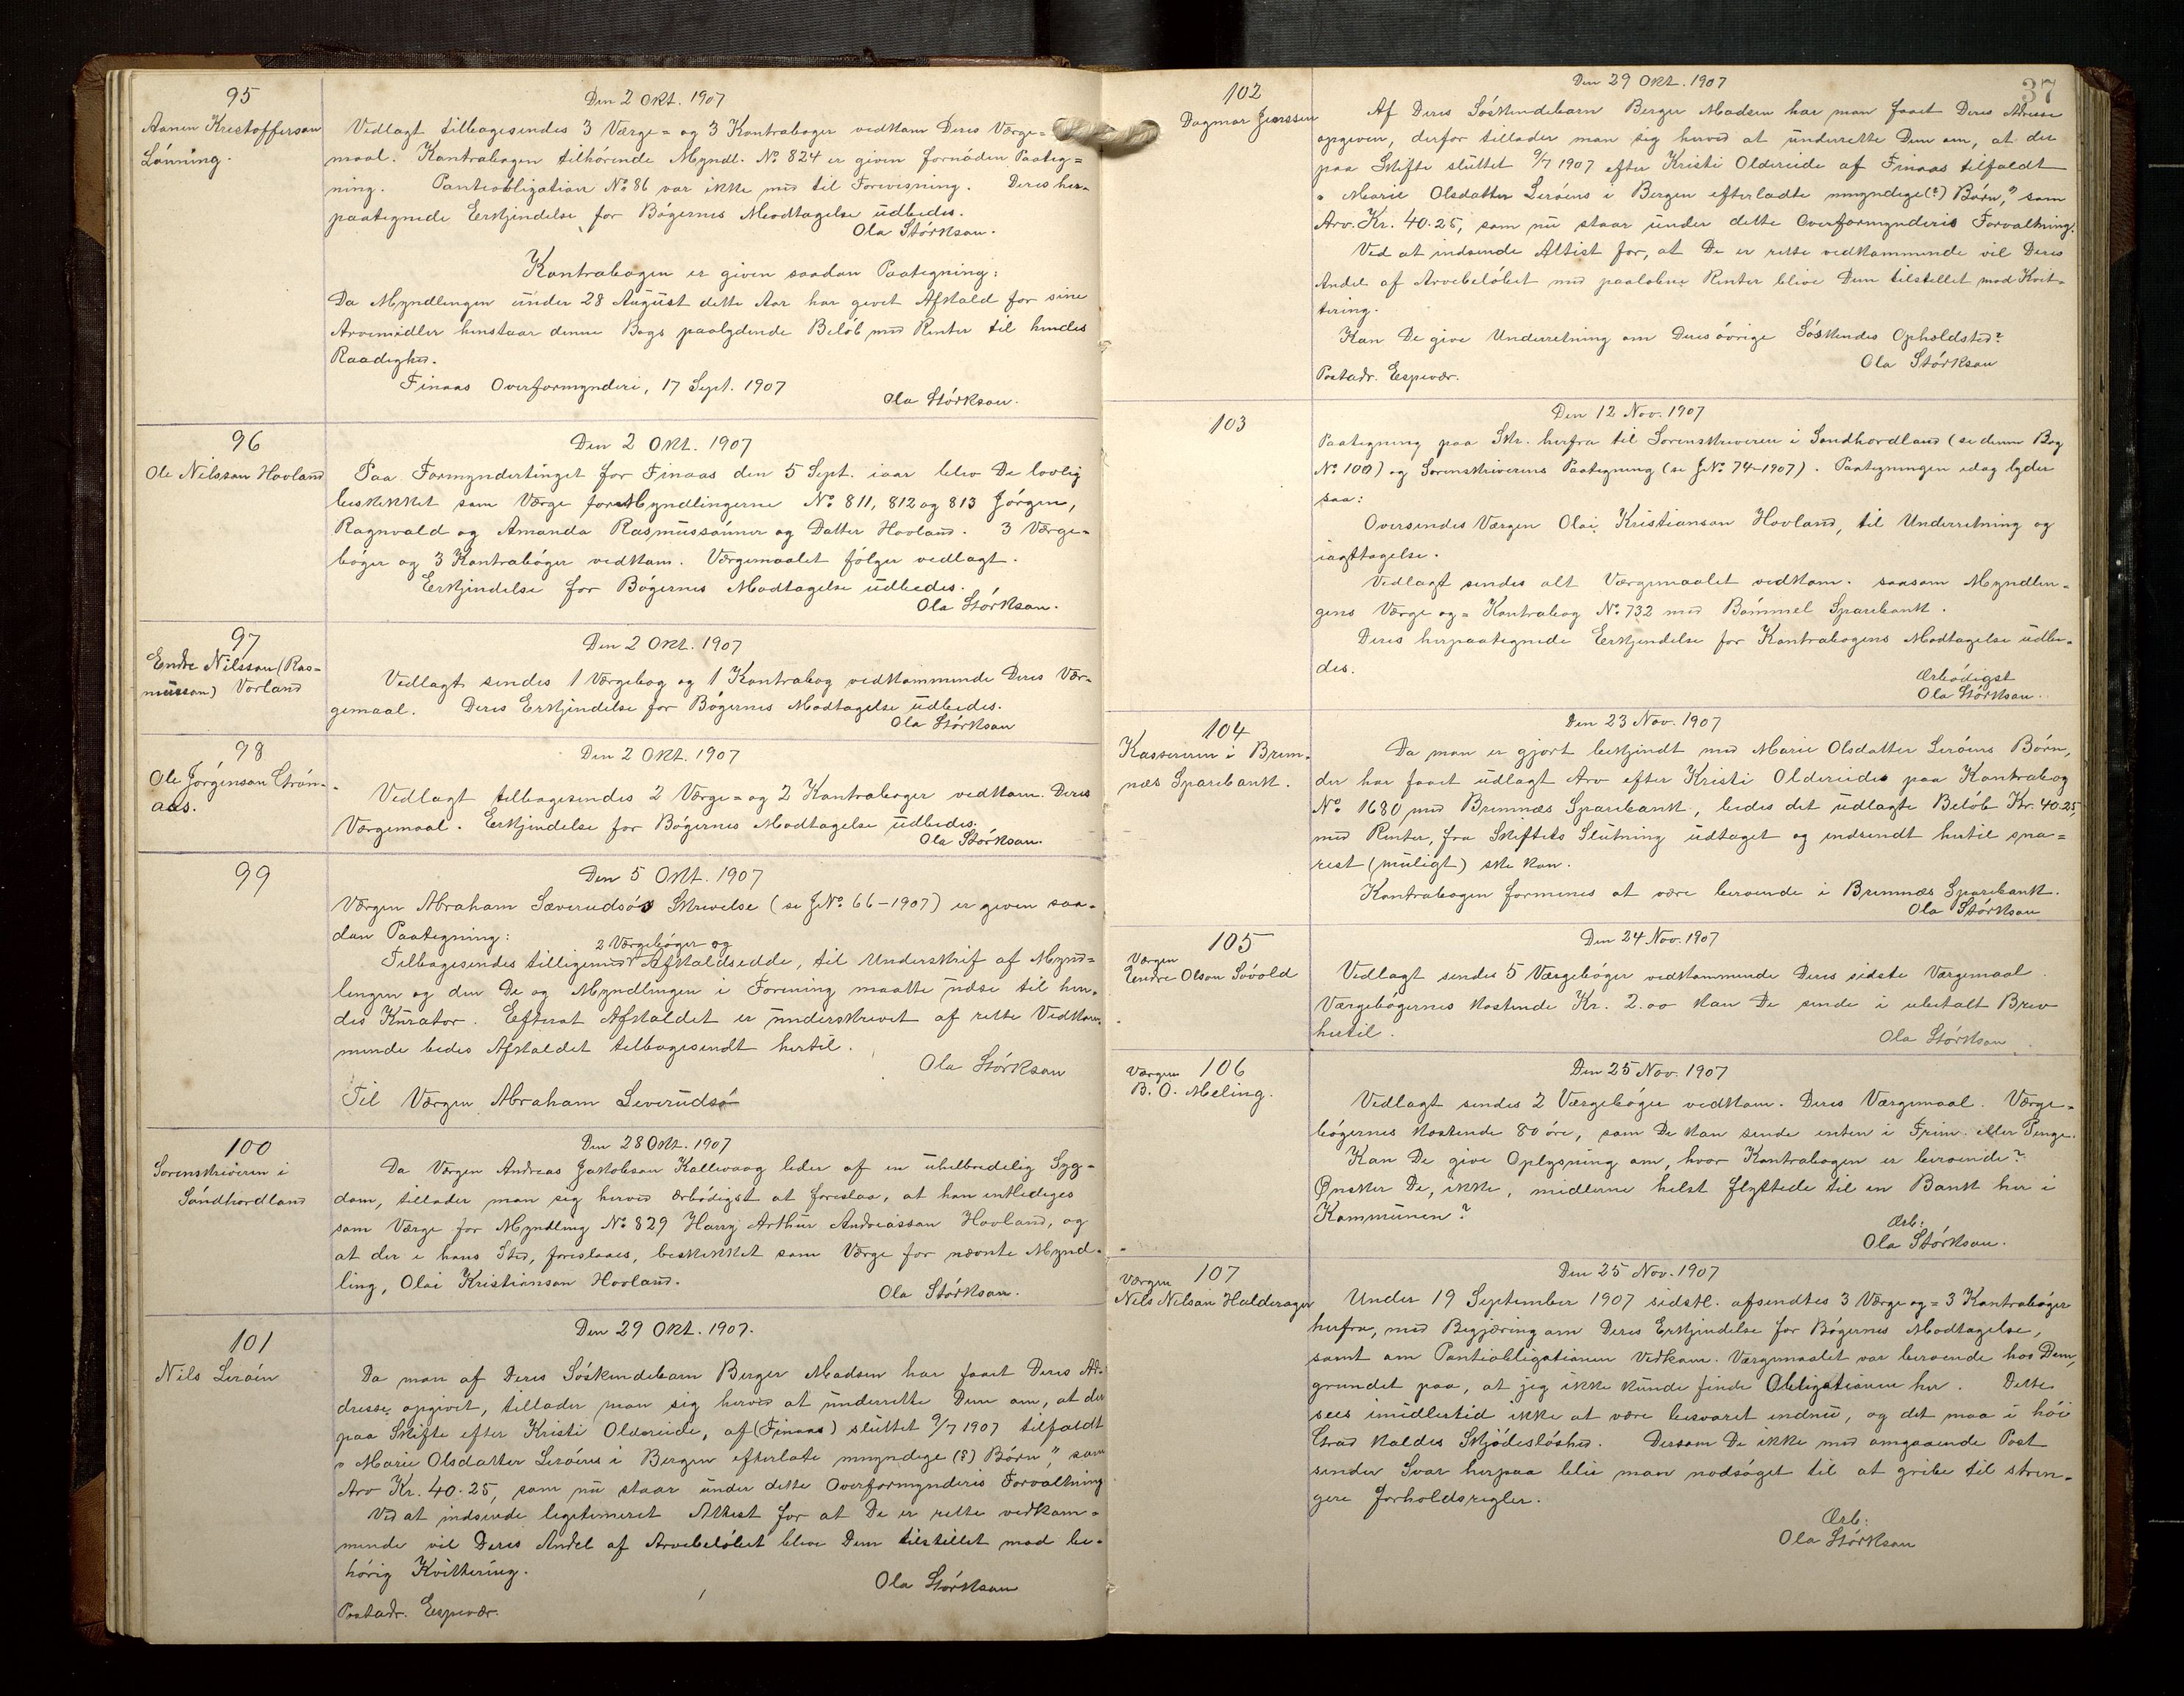 95
Aanen Kristofferson
Lönning.
Den 2 Okt. 1907
Vedlagt tilbagesendes 3 Værge= og 3 Kontraboger vedkom Deres Værge=
maal. Kontrabogen tilhörende Myndl. No 824 er given fornöden Paateg=
ning. Panteobligation No 86 var ikke med til Forevisning. Deres her-
paategnede Erkjendelse for Bögernes Modtagelse udbedes.
Ola Störkson.
Kontrabogen er given saadan Paategning:
Da Myndlingen under 28 August dette Aar har givet Afkald for sine
Arvemidler henstaar denne Bogs paalydende Belöb med Renter til hendes
Raadighed.
Finaas Overformynderi, 17 Sept. 1907
Ola Störkson.
96
Ole Nilsson Hovland
Den 2 Okt. 1907
Paa Formyndertinget for Finaas den 5 Sept. iaar blev De lovlig
beskikket som Værge for Myndlingerne No 811, 812 og 813 Jörgen,
Ragnvald og Amanda Rasmussönner og Datter Hovland. 3 Værge=
böger og 3 Kontraböger vedkom. Værgemaalet fölger vedlagt.
Erkjendelse for Bögernes Modtagelse udbedes.
Ola Störkson.
97
Endre Nilsson (Ras=
musson) Vorland
Den 2 Okt. 1907
Vedlagt sendes 1 Værgebog og 1 Kontrabog vedkommende Deres Vær-
gemaal. Deres Erkjendelse for Bögernes Modtagelse udbedes.
Ola Störkson
98
Ole Jörgenson Strön-
aas.
Den 2 Okt. 1907
Vedlagt tilbagesendes 2 Værge= og 2 Kontraboger vedkom. Deres
Værgemaal. Erkjendelse for Bögernes Modtagelse udbedes.
Ola Störkson.
99
Den 5 Okt. 1907
Værgen Abraham Sæverudsö's Skrivelse (se JNo. 66-1907) er given saa-
dan Paategning:
2 Værgeböger og
Tilbagesendes tilligemed Afkaldsedde, til Underskrif af Mynd=
lingen og den De og Myndlingen i Forening maatte udse til hen-
des Kurator. Efterat Afkaldet er underskrevet af rette Vedkom-
mende bedes Afkaldet tilbagesendt hertil.
Ola Störkson
Til Værgen Abraham Severudsö
100
Sorenskriveren i
Söndhordland
Den 28 Okt. 1907
Da Værgen Andreas Jakobson Kallevaag lider af en uhelbredelig Syg-
dom, tillader man sig herved ærbödigst at foreslaa, at han entlediges
som Værge for Myndling No 829 Harry Arthur Andreasson Hovland, og
at der i hans Sted, foreslaaes, beskikket som Værge for nævnte Mynd-
ling, Olai Kristianson Hovland.
Ola Störkson.
101
Nils Leröen
Den 29 Okt. 1907.
Da man af Deres Söskendebarn Berger Madsen har faaet Deres Ad-
dresse opgivet, tillader man sig herved at underrette Dem om, at der
paa Skifte efter Kristi Oldereide, af (Finaas) sluttet 9/7 1907 tilfaldt
"Marie Olsdatter Leröens i Bergen efterlate umyndige (?) Börn", som
Arv Kr. 40.25, som nu staar under dette Overformynderis Forvaltning
Ved at indsende legitimeret Attest for at De er rette vedkom-
mende vil Deres Andel af Arvebelöbet blive Dem tilstillet mod be-
hörig Kvittering.
Ola Störkson
Postadr. Espevær.
37
102
Dagmar Jenssen
Den 29 Okt. 1907
Af Deres Söskendebarn Berger Madsen har man faaet Deres Adresse
opgiven, derfor tillader man sig herved at underrette Dem om, at der
paa Skifte sluttet 9/7 1907 efter Kristi Oldereide af Finaas tilfaldt
"Marie Olsdatter Leröens i Bergen efterladte umyndige (?) Börn", som
Arv. Kr. 40.25, som nu staar under dette Overformynderis Forvaltning.
Ved at indsende Attest for, at De er rette vedkommende vil Deres
Andel af Arvebelöbet med paalobne Renter blive Dem tilstillet mod Kvit-
tering.
Kan De give Underretning om Deres övrige Söskendes Opholdsted?
Ola Störkson
Postadr. Espevær.
103
Den 12 Nov. 1907
Paategning paa Skr. herfra til Sorenskriveren i Söndhordland (se denne Bog
No. 100) og Sorenskriverens Paategning (se JNo. 74-1907). Paategningen idag lyder
saa:
Oversendes Værgen Olai Kristianson Hovland, til Underretning og
iagttagelse.
Vedlagt sendes alt Værgemaalet vedkom. saasom Myndlin-
gens Værge og= Kontrabog No. 732 med Bömmel Sparebank.
Deres herpaategnede Erkjendelse for Kontrabogens Modtagelse udbe-
des.
Ærbödigst
Ola Störkson.
104
Kassereren i Brem-
næs Sparebank.
Den 23 Nov. 1907
Da man er gjort bekjendt med Marie Olsdatter Leröens Börn,
der har faaet udlagt Arv efter Kristi Oldereides paa Kontrabog
No 1680 med Bremnæs Sparebank, bedes det udlagte Belöb Kr. 40.25,
med Renter, fra Skiftets Slutning udtaget og indsendt hertil sna=
rest (muligt) ske kan.
Kontrabogen formenes at være beroende i Bremnæs Sparebank.
Ola Störkson
105
Værgen
Endre Olson Sövold
Den 24 Nov. 1907
Vedlagt sendes 5 Værgeböger vedkommende Deres sidste Værgemaal.
Værgebögernes kostende Kr. 2.00 kan De sende i ubetalt Brev
hertil.
Ola Störkson
106
Værgen
B. O. Meling.
Den 25 Nov. 1907
Vedlagt sendes 2 Værgeböger vedkom. Deres Værgemaal. Værge=
bögernes kostende 80 öre, som De kan sende enten i Frim. eller Penge.
Kan De give Oplysning om, hvor Kontrabogen er beroende?
Ønsker De, ikke, midlerne helst flyttede til en Bank her i
Kommunen?
Ærb:
Ola Störkson.
107
Værgen
Nils Nilsön Halderager
Den 25 Nov. 1907
Under 19 September 1907 sidstl. afsendtes 3 Værge og= 3 Kontraböger
herfra, med Begjæring om Deres Erkjendelse for Bögernes Modtagelse,
samt om Panteobligationen Vedkom. Værgemaalet var beroende hos Dem,
grundet paa, at jeg ikke kunde finde Obligationen her. Dette
sees imidlertid ikke at være besvaret endnu, og det maa i höi
Grad kaldes Skjödeslöshed. Dersom De ikke med omgaaende Post
sender Svar herpaa blir man nodsöget til at gribe til stren-
gere Forholdsregler.
Ærb:
Ola Störkson